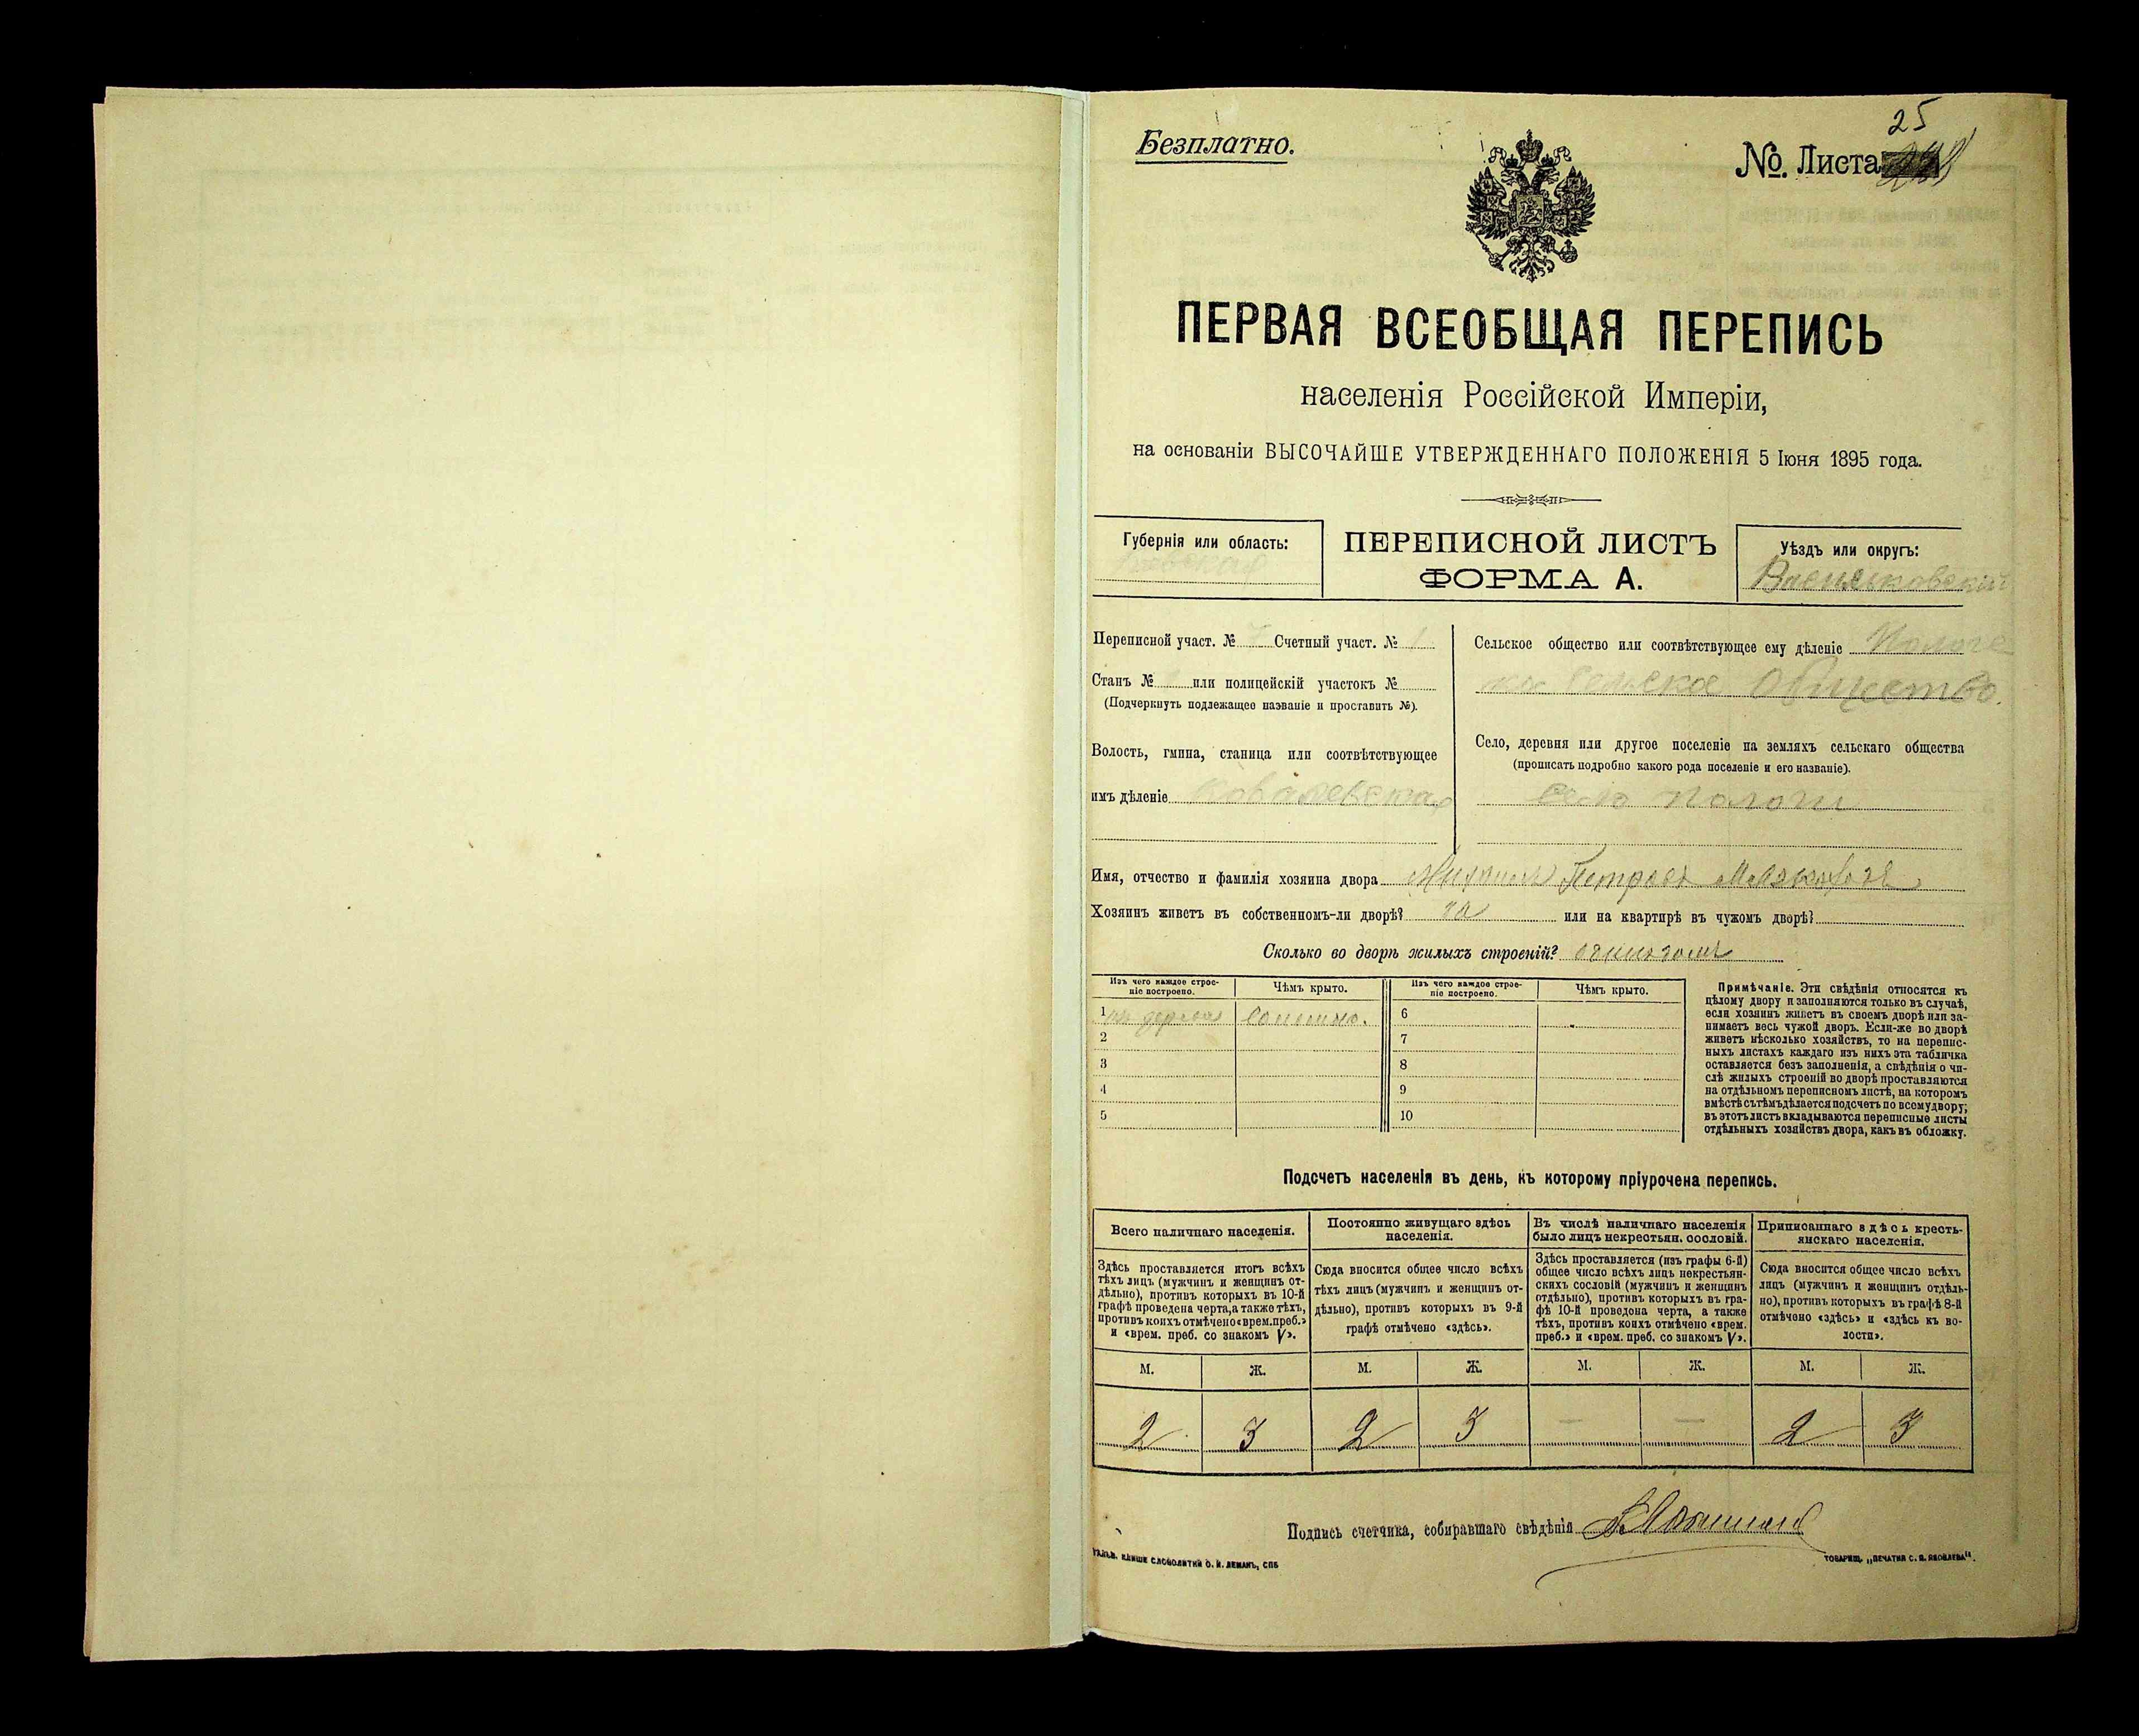 Безплатно.
25
№. Листа
ПЕРВАЯ ВСЕОБЩАЯ ПЕРЕПИСЬ
населенія Россійской Имперіи,
на основаніи ВЫСОЧАЙШЕ УТВЕРЖДЕННАГО ПОЛОЖЕНІЯ 5 Іюня 1895 года.
Губернія или область:
ПЕРЕПИСНОЙ ЛИСТЪ
ФОРМА А.
Уѣздъ или округъ:
Васильковскій
Переписной участ. № 7 Счетный участ. № 1
Станъ № или полицейскій участокъ №
(Подчеркнуть подлежащее названіе и проставить №).
Волость, гмина, станица или соотвѣтствующее
имъ дѣленіе Ковалевская
Сельское общество или соотвѣтствующее ему дѣленіе
сельское Общество.
Село, деревня или другое поселеніе на земляхъ сельскаго общества
(прописать подробно какого рода поселеніе и его названіе).
Село Пологи
Имя, отчество и фамилія хозяина двора Михаилъ Петровъ
Хозяинъ живетъ въ собственномъ-ли дворѣ? да или на квартирѣ въ чужомъ дворѣ?
Сколько во дворѣ жилыхъ строеній?
Изъ чего каждое строе-
ніе построено.
Чѣмъ крыто.
Изъ чего каждое строе-
ніе построено.
Чѣмъ крыто.
1 изъ дерева соломою. 6
2 7
3 8
4 9
5 10
Примѣчаніе. Эти свѣдѣнія относятся къ
цѣлому двору и заполняются только въ случаѣ,
если хозяинъ живетъ въ своемъ дворѣ или за-
нимаетъ весь чужой дворъ. Если-же во дворѣ
живетъ нѣсколько хозяйствъ, то на перепис-
ныхъ листахъ каждаго изъ нихъ эта табличка
оставляется безъ заполненія, а свѣдѣнія о чи-
слѣ жилыхъ строеній во дворѣ проставляются
на отдѣльномъ переписномъ листѣ, на которомъ
вмѣстѣ съ тѣмъ дѣлается подсчетъ по всему двору;
въ этотъ листъ вкладываются переписные листы
отдѣльныхъ хозяйствъ двора, какъ въ обложку.
Подсчетъ населенія въ день, къ которому пріурочена перепись.
Всего наличнаго населенія.
Здѣсь проставляется итогъ всѣхъ
тѣхъ лицъ (мужчинъ и женщинъ от-
дѣльно), противъ которыхъ въ 10-й
графѣ проведена черта, а также тѣхъ,
противъ коихъ отмѣчено «врем. преб.»
и «врем. преб. со знакомъ V».
Постоянно живущаго здѣсь
населенія.
Сюда вносится общее число всѣхъ
тѣхъ лицъ (мужчинъ и женщинъ от-
дѣльно), противъ которыхъ въ 9-й
графѣ отмѣчено «здѣсь».
Въ числѣ наличнаго населенія
было лицъ некрестьян. сословій.
Здѣсь проставляется (изъ графы 6-й)
общее число всѣхъ лицъ некрестьян-
скихъ сословій (мужчинъ и женщинъ
отдѣльно), противъ которыхъ въ гра-
фѣ 10-й проведена черта, а также
тѣхъ, противъ коихъ отмѣчено «врем.
преб.» и «врем. преб. со знакомъ V».
Приписаннаго здѣсь кресть-
янскаго населенія.
Сюда вносится общее число всѣхъ
лицъ (мужчинъ и женщинъ отдѣль-
но), противъ которыхъ въ графѣ 8-й
отмѣчено «здѣсь» и «здѣсь къ во-
лости».
М. Ж. М. Ж. М. Ж. М. Ж.
2 3 2 3 — — 2 3
Подпись счетчика, собиравшаго свѣдѣнія
КЛИШЕ СЛОВОЛИТНИ О. И. ЛЕМАНЪ, СПБ
ТОВАРИЩ. „ПЕЧАТНЯ С. П. ЯКОВЛЕВА".